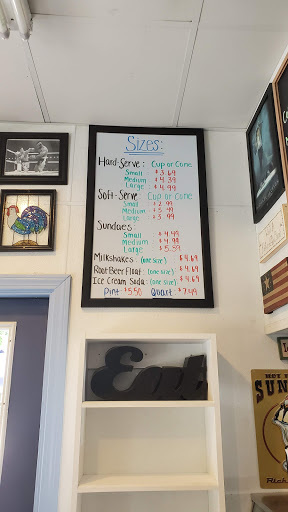 Sizes:
Hard-Serve: Cup or Cone
Small: $3.69
Medium: $4.39
Large: $4.99
Soft-Serve: Cup or Cone
Small $2.99
Medium $3.49
Large $3.99
Sundaes:
Small $4.49
Medium $4.99
Large $5.49
Milkshakes: (one size) $4.69
Root Beer Float: (one size) $4.69
Ice Cream Soda: (one size) $4.69
Pint $5.50 Quart $7.49
Eat
SUN
Rich